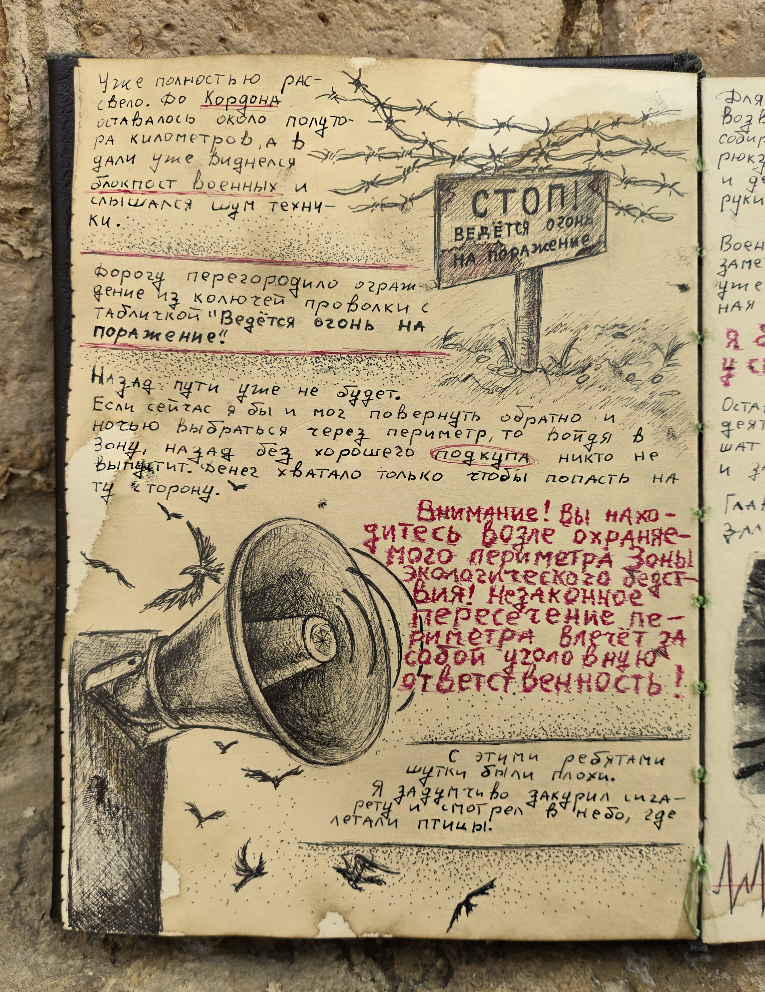 Уже полностью рас-
свело. До Кордона
оставалось около полуто-
ра километров, а в
дали уже виднелся
блокпост военных и
слышался шум техни-
ки.
СТОП!
ВЕДЁТСЯ ОГОНЬ
НА ПОРАЖЕНИЕ
Дорогу перегородило ограж-
дение из колючей проволки с
табличкой "Ведётся огонь на
поражение".
Назад пути уже не будет.
Если сейчас я бы и мог повернуть обратно и
ночью выбраться через периметр, то войдя в
Зону, назад без хорошего подкупа никто не
выпустит. Денег хватало только чтобы попасть на
ту сторону.
Внимание! Вы нахо-
дитесь возле охраняе-
мого периметра Зоны
экологического бедст-
вия! Незаконное
пересечение пе-
риметра влечёт за
собой уголовную
ответственность!
С этими ребятами
шутки были плохи.
Я задумчиво закурил сига-
рету и смотрел в небо, где
летали птицы.
Для
возв
собир
рюкз
и де
руки
Воен
заме
уже
ная
Я
у
Оста
деят
шат
и за
Глав
зал